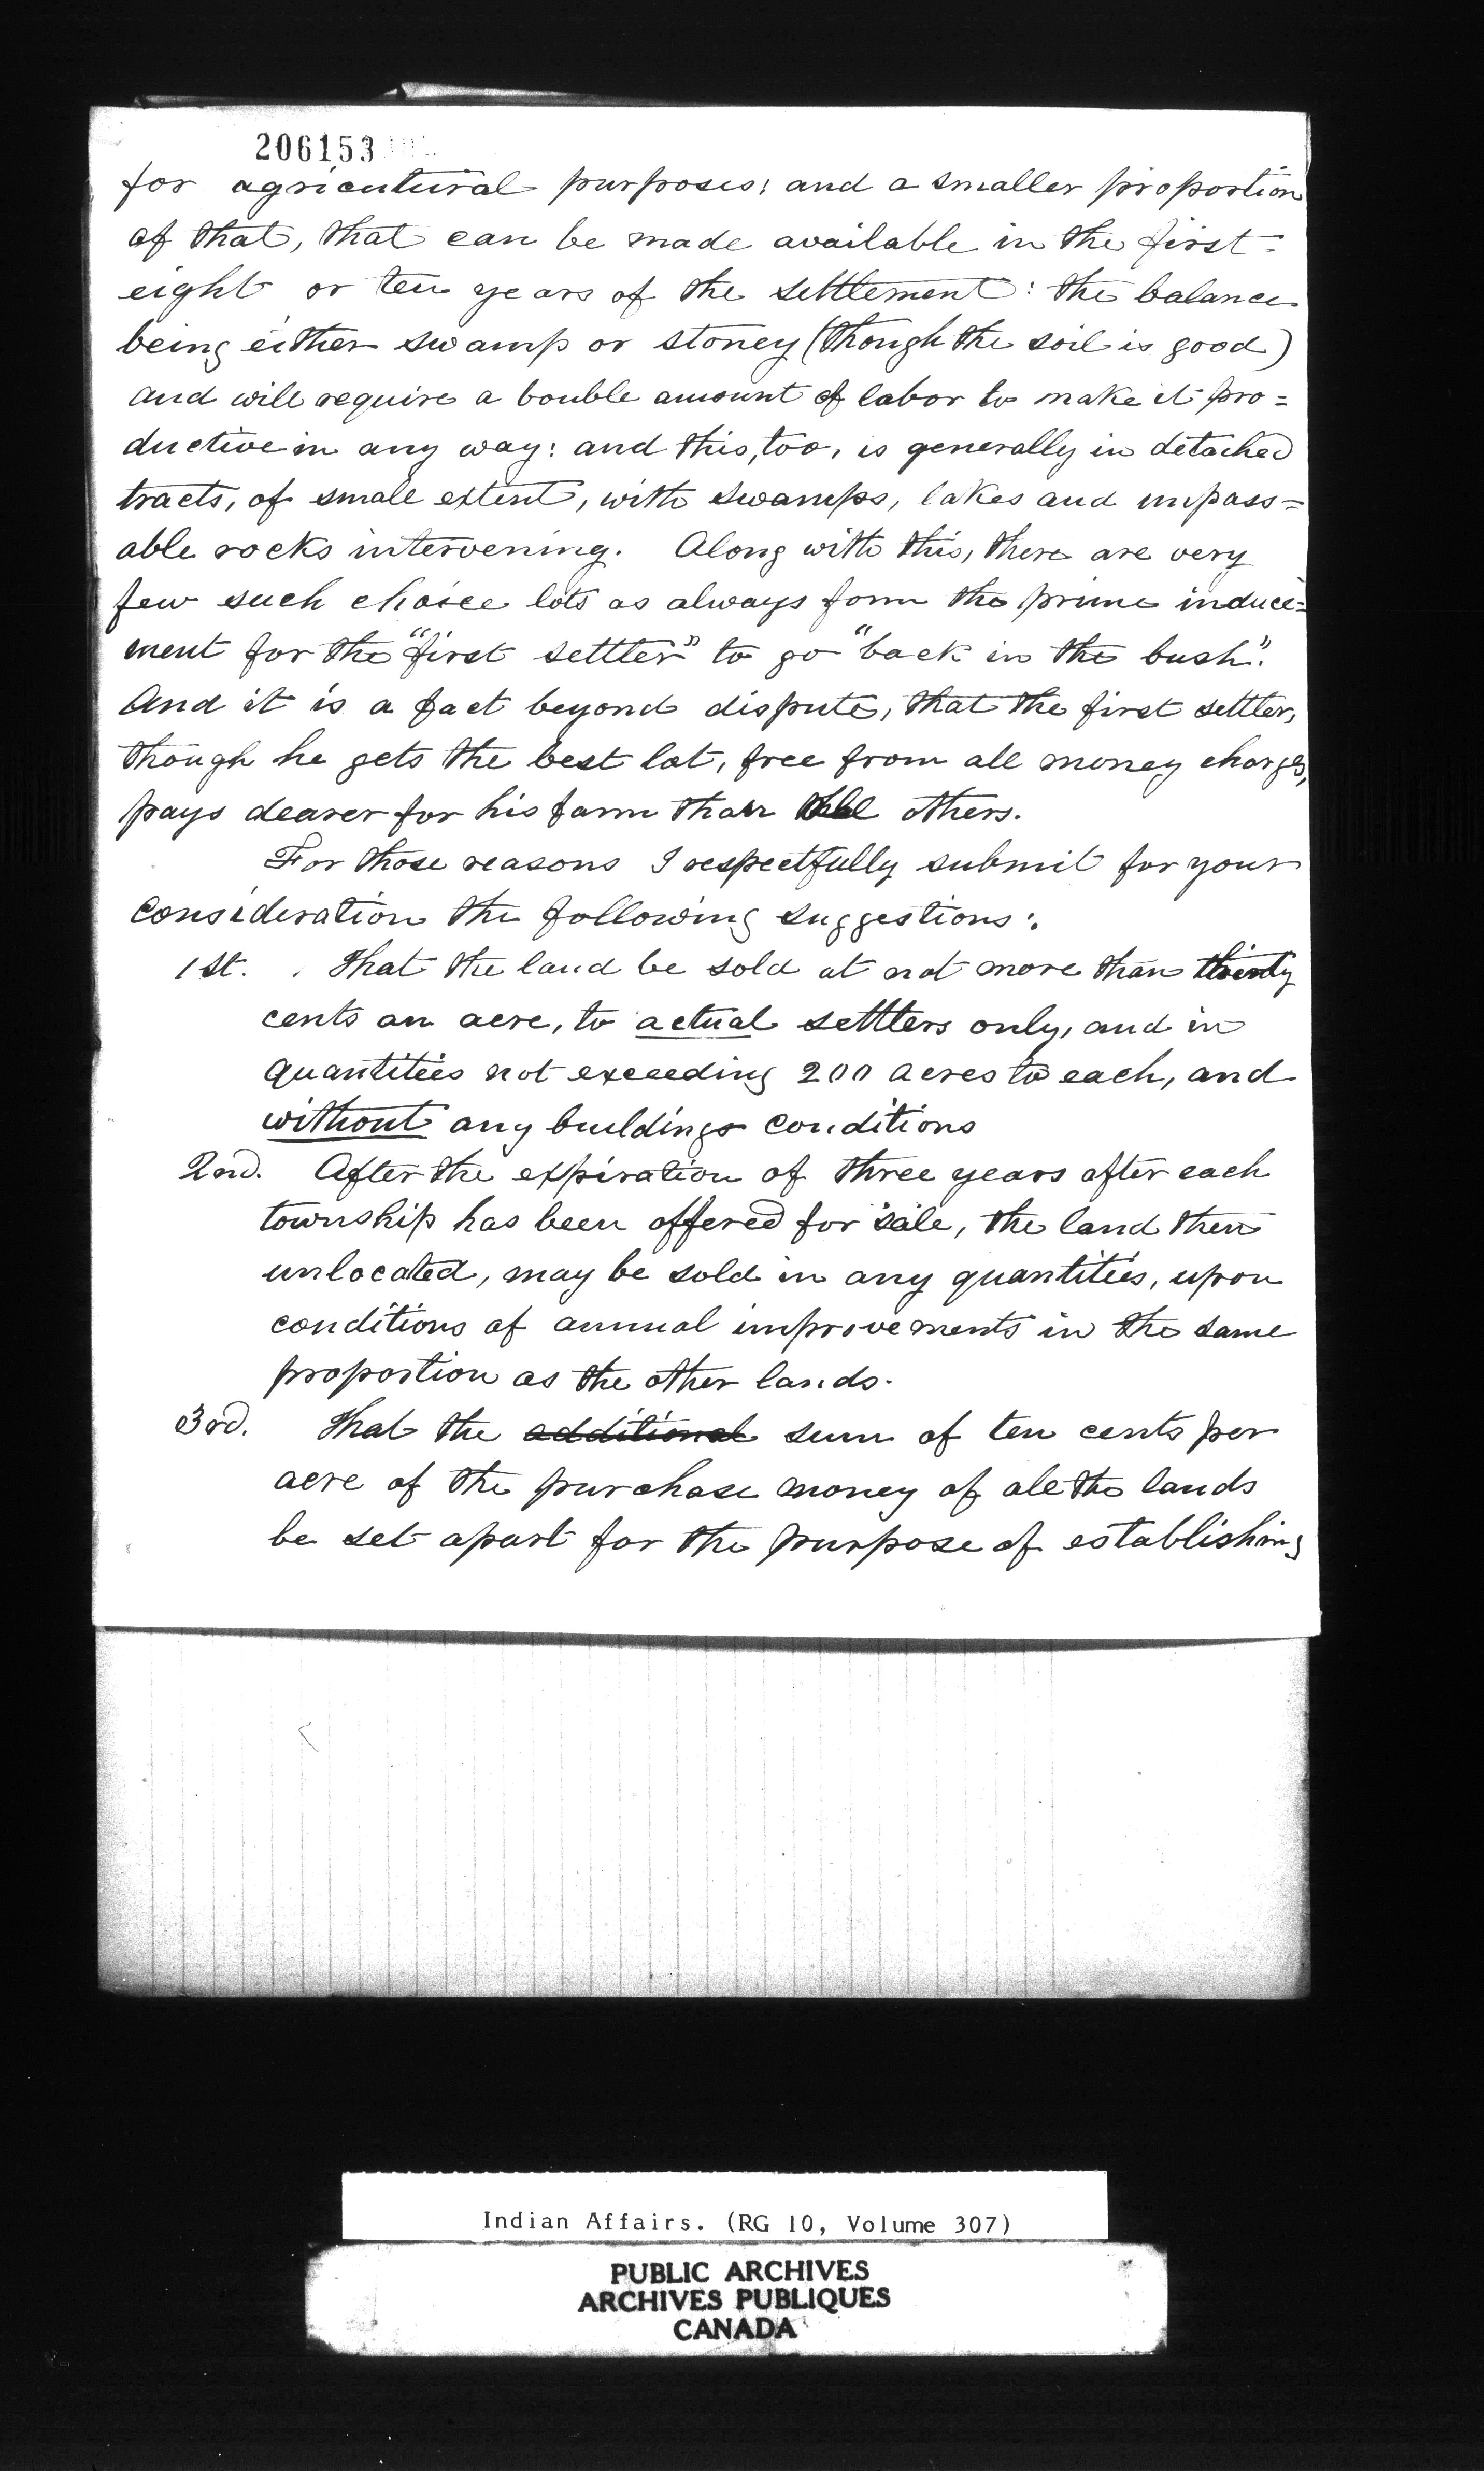 206153
for agricultural purposes; and a smaller proportion
of that, that can be made available in the first
eight or ten years of the settlement: the balance
being either swamp or stoney (though the soil is good)
and will require a bouble amount of labor to make it pro=
ductive in any way: and this, too, is generally in detached
tracts, of small extent, with swamps, lakes and unpass=
able rocks intervening. Along with this, there are very
few such choice lots as always form the prime induce=
ment for the "first settler" to go "back in the bush".
And it is a fact beyond dispute, that the first settler,
though he gets the best lot, free from all money charges,
pays dearer for his farm than others.
For those reasons I respectfully submit for your
consideration the following suggestions:.
1st. That the land be sold at not more than
cents an acre, to actual settlers only, and in
quantities not exceeding 200 acres to each, and
without any buildings conditions
2nd. After the expiration of three years after each
township has been offered for sale, the land then
unlocated, may be sold in any quantities, upon
conditions of annual improvements in the same
proportion as the other lands.
3rd. That the additional sum of ten cents per
acre of the purchase money of all the lands
be set apart for the purpose of establishing
Indian Affairs. (RG 10, Volume 307)
PUBLIC ARCHIVES
ARCHIVES PUBLIQUES
CANADA